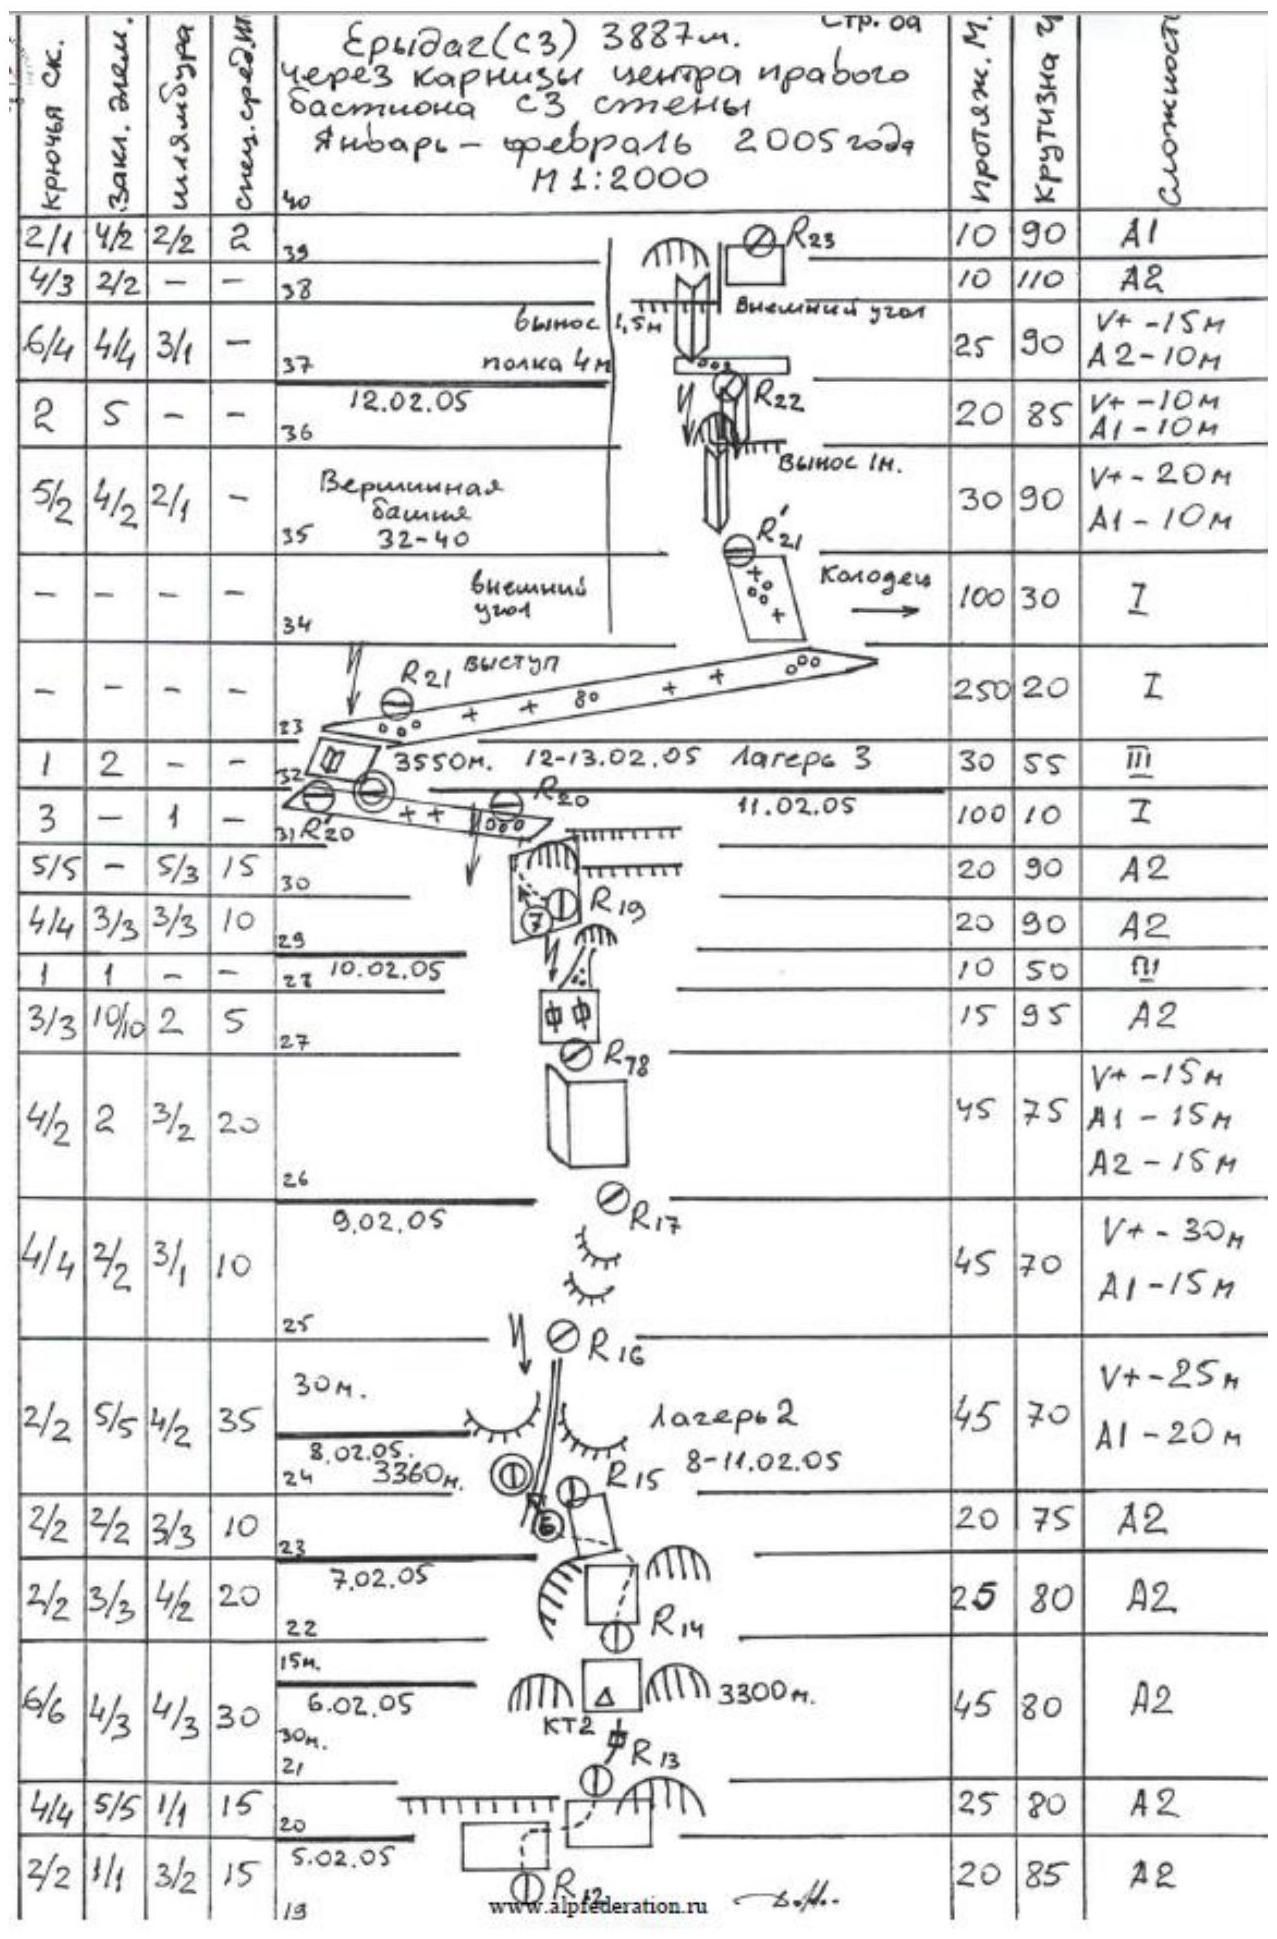 Стр. 09
Ерыдаг(СЗ) 3887м.
через карнизы центра правого
бастиона СЗ стены
Январь – февраль 2005 года
М 1:2000
крючья ск. Закл. элем. шлямбура спец.сред. Протяж. М. Крутизна Сложность
40
2/1 4/2 2/2 2 39 R23 10 90 А1
4/3 2/2 – – 38 10 110 А2
вынос 1,5м Внешний угол
6/4 4/4 3/1 – 37 полка 4м 25 90 V+ -15м
А2-10м
12.02.05 R22
2 5 – – 36 20 85 V+ -10м
А1-10м
Вынос 1м.
5/2 4/2 2/1 – 35 Вершинная
башня
32-40
30 90 V+ - 20м
А1 - 10м
R'21
– – – – 34 внешний
угол
Колодец
100 30 I
– – – – 23 R21 выступ 250 20 I
1 2 – – 32 3550м. 12-13.02.05 Лагерь 3 30 55 III
3 – 1 – 31 R'20 R20 11.02.05 100 10 I
5/5 – 5/3 15 30 20 90 А2
4/4 3/3 3/3 10 29 7 R19 20 90 А2
1 1 – – 28 10.02.05 10 50 III
3/3 10/10 2 5 27 15 95 А2
R18
4/2 2 3/2 20 26 45 75 V+ -15м
А1 - 15м
А2 - 15м
R17
9.02.05
4/4 2/2 3/1 10 25 45 70 V+ - 30м
А1 - 15м
R16
30м.
2/2 5/5 4/2 35 24 45 70 V+ -25м
А1 - 20м
Лагерь 2
8-11.02.05
8.02.05.
3360м.
R15
2/2 2/2 3/3 10 23 6 20 75 А2
7.02.05
2/2 3/3 4/2 20 22 R14 25 80 А2
15м.
6.02.05 3300м.
КТ2
6/6 4/3 4/3 30 30м. 21 R13 45 80 А2
4/4 5/5 1/1 15 20 25 80 А2
5.02.05
2/2 1/1 3/2 15 19 R12 20 85 А2
www.alpfederation.ru